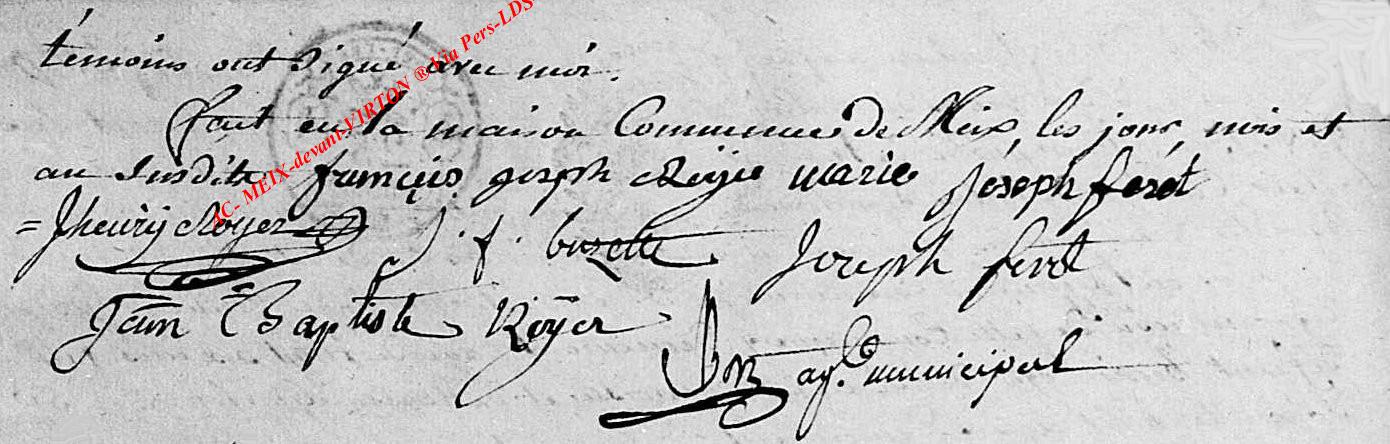 témoins ont signé avec moi.
fait en la maison Commune de Meix les jour mois et
an susdits françois joseph Roÿer marie joseph ferét
= Jhenrÿ Royer J. f. bozete Joseph feret
Jean Baptiste Roÿer
ag. municipal
AC- MEIX-devant-VIRTON ® Via Pers-LDS